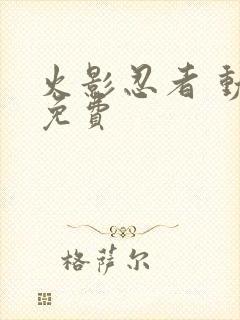 火影忍者 動
免費
格萨尔